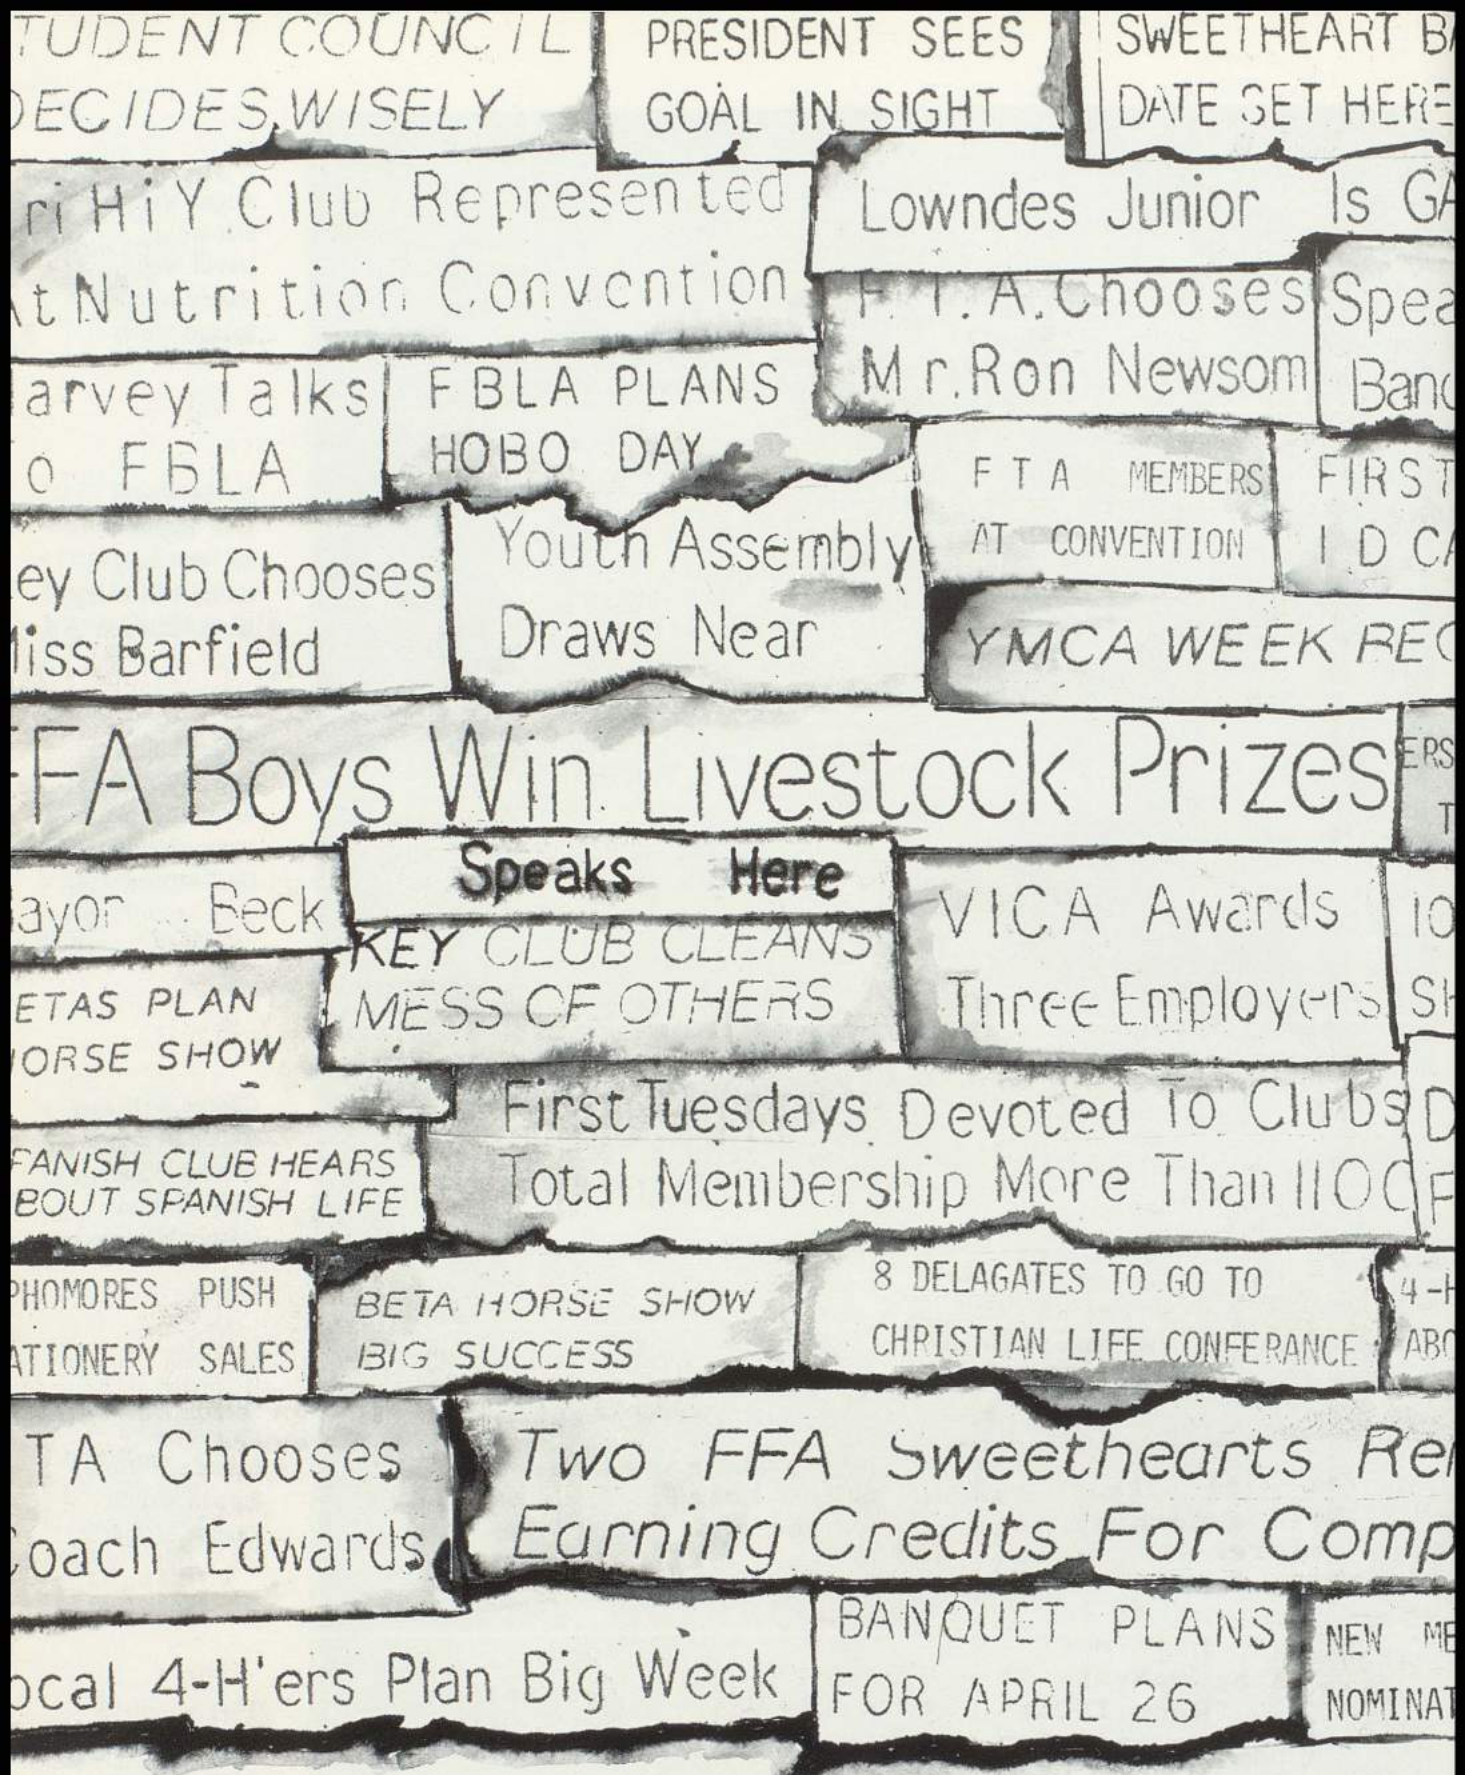 TUDENT COUNCIL
DECIDES WISELY
PRESIDENT SEES
GOAL IN SIGHT
SWEETHEART BA
DATE SET HERE
ri Hi Y Club Represented
At Nutrition Convention
Lowndes Junior Is GA
F.T.A. Chooses
Mr. Ron Newsom
Spea
Banq
arvey Talks
o FBLA
FBLA PLANS
HOBO DAY
FTA MEMBERS
AT CONVENTION
FIRST
I D CA
ey Club Chooses
Miss Barfield
Youth Assembly
Draws Near
YMCA WEEK REC
FFA Boys Win Livestock Prizes
ERS
T
ayor Beck
Speaks Here
KEY CLUB CLEANS
MESS OF OTHERS
VICA Awards
Three Employers
10
SH
ETAS PLAN
HORSE SHOW
First Tuesdays Devoted To Clubs
Total Membership More Than 1100
D
F
PANISH CLUB HEARS
BOUT SPANISH LIFE
PHOMORES PUSH
ATIONERY SALES
BETA HORSE SHOW
BIG SUCCESS
8 DELAGATES TO GO TO
CHRISTIAN LIFE CONFERANCE
4-H
ABO
TA Chooses
Coach Edwards
Two FFA Sweethearts Rei
Earning Credits For Comp
ocal 4-H'ers Plan Big Week
BANQUET PLANS
FOR APRIL 26
NEW ME
NOMINAT